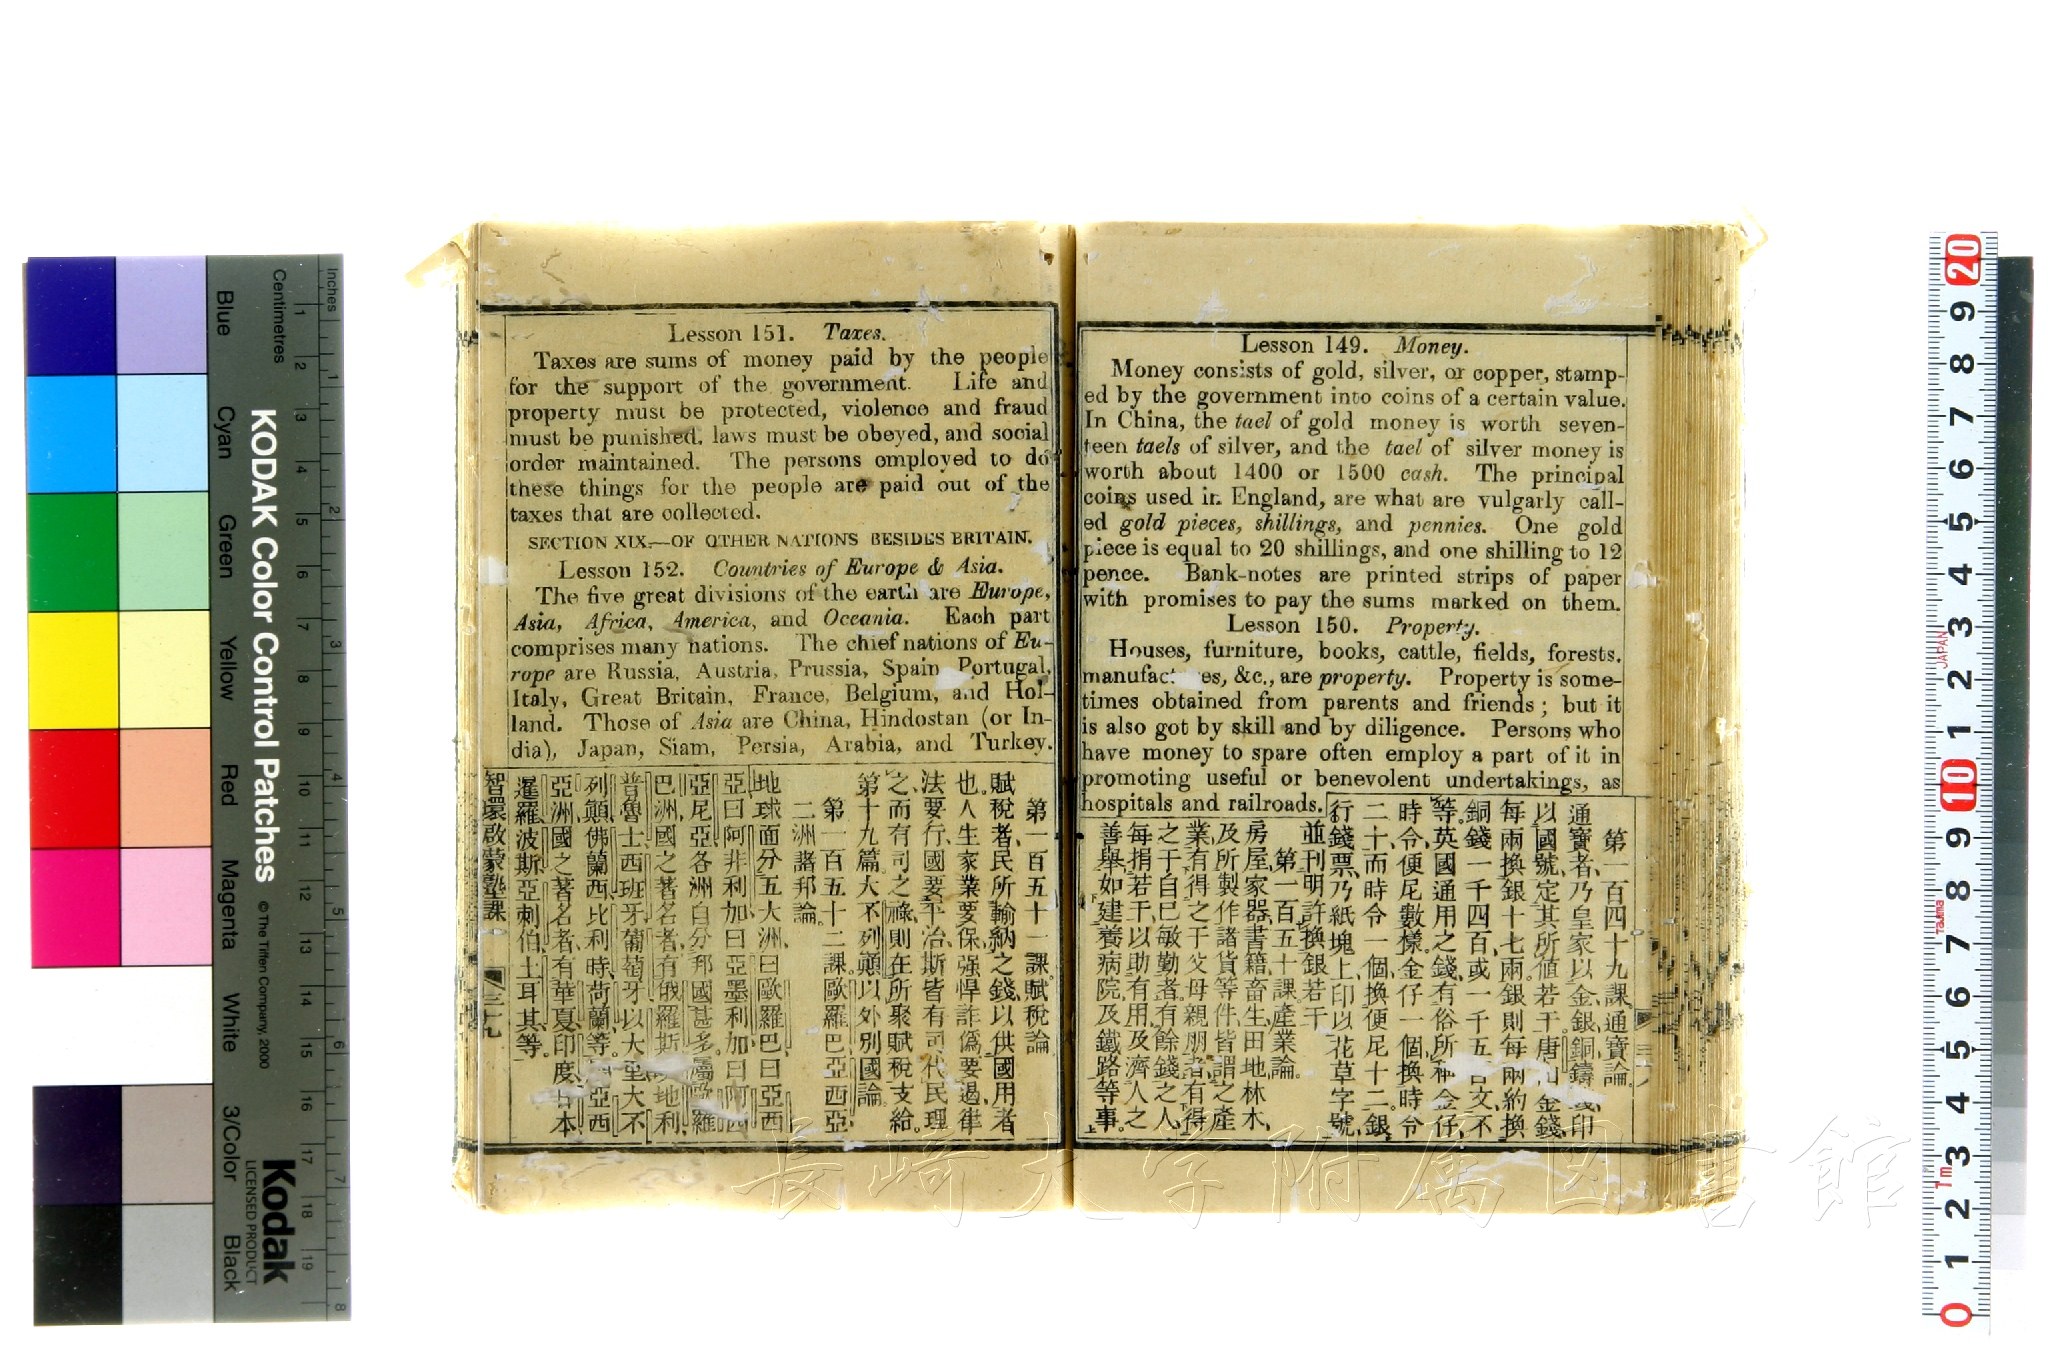 Lesson 149. Money.
Money consists of gold, silver, or copper, stamp-
ed by the government into coins of a certain value.
In China, the tael of gold money is worth seven-
teen taels of silver, and the tael of silver money is
worth about 1400 or 1500 cash. The principal
coins used in England, are what are vulgarly call-
ed gold pieces, shillings, and pennies. One gold
piece is equal to 20 shillings, and one shilling to 12
pence. Bank-notes are printed strips of paper
with promises to pay the sums marked on them.
Lesson 150. Property.
Houses, furniture, books, cattle, fields, forests.
&c., are property. Property is some-
times obtained from parents and friends; but it
is also got by skill and by diligence. Persons who
have money to spare often employ a part of it in
promoting useful or benevolent undertakings, as
hospitals and railroads.
第一百四十九課通寶論。
通寶者、乃皇家以金銀銅鑄印
以國號、定其所値若干。唐金錢、
每兩換銀十七兩。銀則每兩約換
銅錢一千四百、或一千五文、不
等。英國通用之錢、有俗所金仔、
時令、便尼數樣。金仔一個、換時令
二十、而時令一個、換便尼十二。銀
行錢票、乃紙塊上、印以花草字號、
並刊明許換銀若干。
第一百五十課產業論。
房屋家器書籍畜生田地林木、
及所製作諸貨等件、皆謂之產
業、有得之于父母親朋者、有得
之于自已敏勤者、有餘錢之人、
每捐若干、以助有用及濟人之
善舉、如建養病院、及鐵路等事。
Lesson 151. Taxes.
Taxes are sums of money paid by the people
for the support of the government. Life and
property must be protected, violence and fraud
must be punished, laws must be obeyed, and social
order maintained. The persons employed to do
these things for the people are paid out of the
taxes that are collected.
SECTION XIX.—OF OTHER NATIONS BESIDES BRITAIN.
Lesson 152. Countries of Europe & Asia.
The five great divisions of the earth are Europe,
Asia, Africa, America, and Oceania. Each part
comprises many nations. The chief nations of Eu-
rope are Russia, Austria, Prussia, Spain Portugal,
Italy, Great Britain, France, Belgium, and Hol-
land. Those of Asia are China, Hindostan (or In-
dia), Japan, Siam, Persia, Arabia, and Turkey.
第一百五十一課。賦稅論
賦稅者、民所輸納之錢、以供國用者
也。人生家業要保、强悍詐僞要遏、律
法要行、國要平治、斯皆有司代民理
之、而有司之祿、則在所聚賦稅支給。
第十九篇。大不列顛以外別國論。
第一百五十二課。歐羅巴亞西亞
二洲諸邦論。
地球面分五大洲、曰歐羅巴、曰亞西
亞、曰阿非利加、曰亞墨利加、曰阿西
亞尼亞、各洲自分邦國甚多、屬歐羅
巴洲國之著名者、有俄羅斯、地利、
普魯士、西班牙、葡萄牙、以大里、大不
列顛、佛蘭西、比利時、荷蘭等。亞西
亞洲國之著名者、有華夏、印度、日本、
暹羅、波斯、亞刺伯、土耳其等。
智環啟蒙塾課
三十九
長崎大学附属図書館
KODAK Color Control Patches
© The Tiffen Company, 2000
Kodak
LICENSED PRODUCT
Inches
Centimetres
Blue
Cyan
Green
Yellow
Red
Magenta
White
3/Color
Black
1 2 3 4 5 6 7 8 9 10 11 12 13 14 15 16 17 18 19
1 2 3 4 5 6 7 8
20
9
8
7
6
5
4
3
JAPAN
2
1
10
9
8
7
Tajima
6
5
4
3
1m
2
1
0